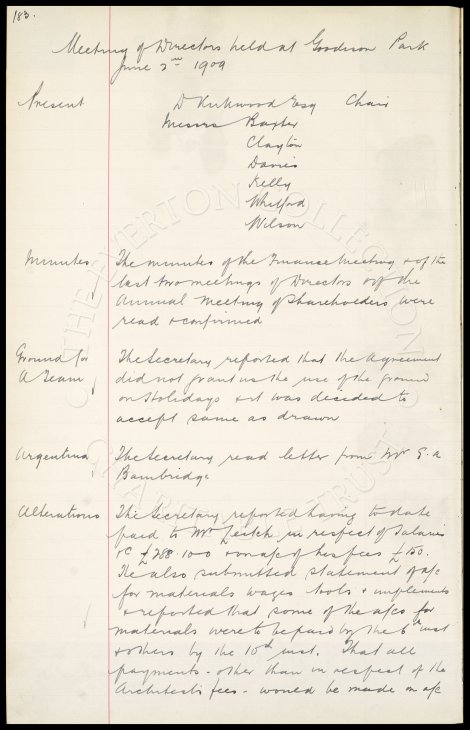 183.
Meeting of Directors held at Goodison Park
June 2nd 1909
Present D Kirkwood Esq Chair
Messrs Baxter
Clayton
Davies
Kelly
Whitford
Wilson
Minutes The minutes of the Finance Meeting & of the
last two meetings of Directors & of the
Annual Meeting of Shareholders were
read & confirmed
Ground for The Secretary reported that the Agreement
A Team did not grant us the use of the ground
on Holidays & it was decided to
accept same as drawn
Argentina The Secretary read letter from Mr E. A
Bambridge
Alterations The Secretary reported having to date
paid to Mr Leitch in respect of Salaries
&c £288 & on a/c of his fees £150.
He also submitted statement of a/c
for materials wages tools & implements
& reported that some of the a/cs for
materials were to be paid by the 6th inst
& others by the 10th inst. That all
payments - other than in respect of the
Architect's fees - would be made on a/c
THE EVERTON COLLECTION
CHARITABLE TRUST